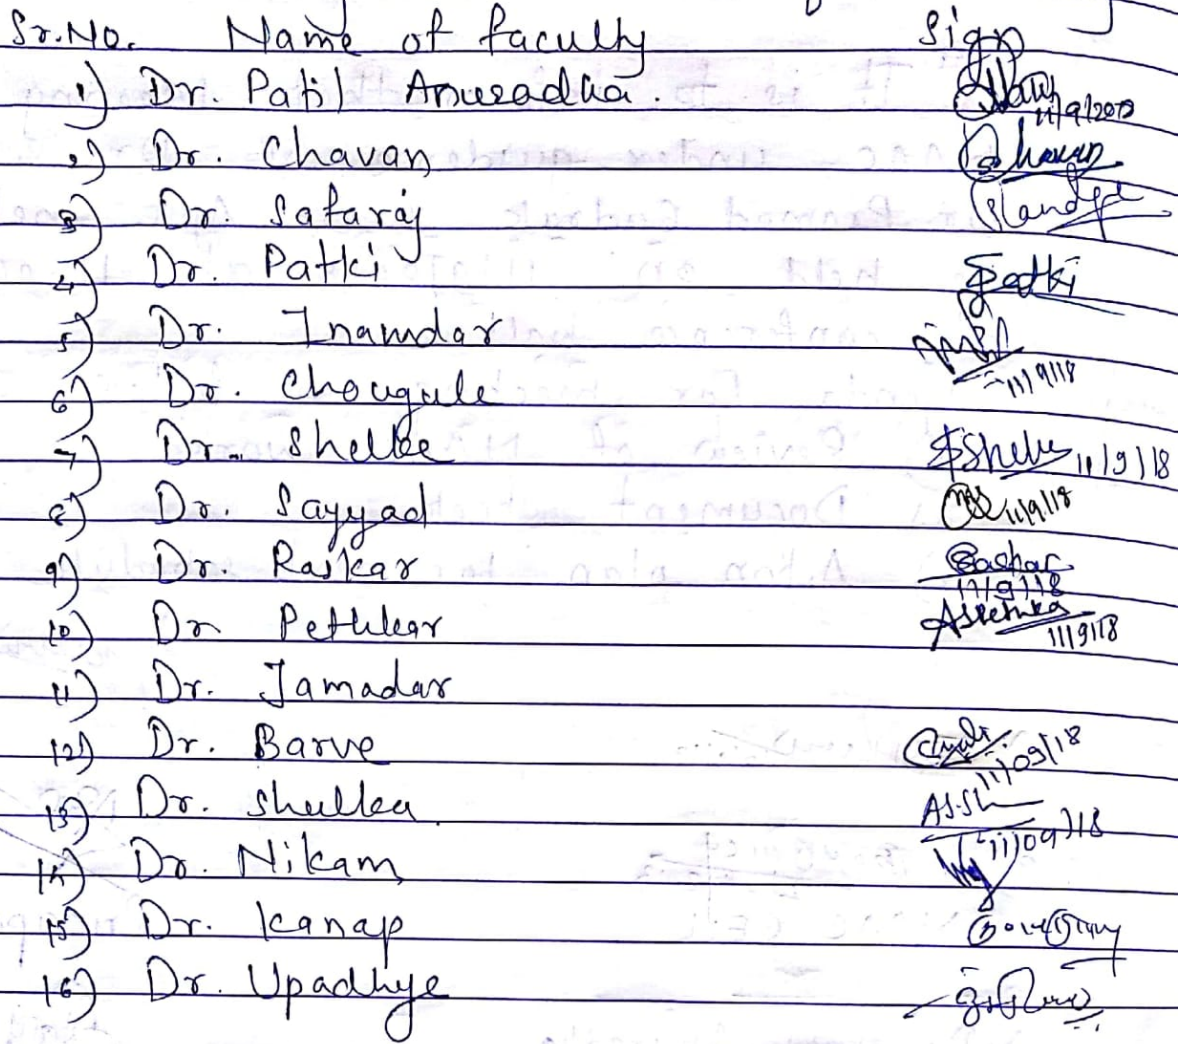 Sr.No. Name of faculty Sign
1) Dr. Patil Anuradha. 11/9/2018
2) Dr. Chavan Chavan
3) Dr. Sataraj
4) Dr. Patki Patki
5) Dr. Inamdar 11/9/18
6) Dr. Chougule
7) Dr. Shelke Shelke 11/9/18
8) Dr. Sayyad 11/9/18
9) Dr. Raskar Raskar 11/9/18
10) Dr Pethkar 11/9/18
11) Dr. Jamadar
12) Dr. Barve 11/09/18
13) Dr. Shukla 11/09/18
14) Dr. Nikam
15) Dr. Kanap
16) Dr. Upadhye